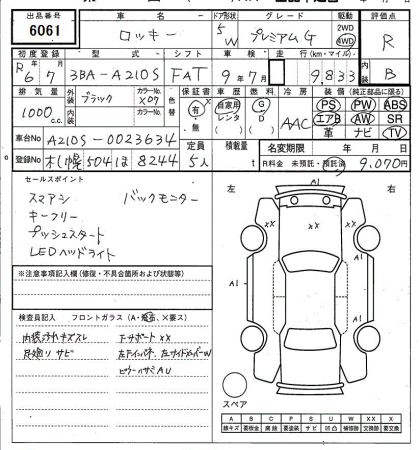 出品番号 車名 ドア形状 グレード 駆動 評価点
6061 ロッキー 5 W プレミアムG 2WD 4WD R
初度登録 型式 シフト 車検 走行 (km・マイル) 内装
R6/7 3BA-A210S FAT 9年7月 9,833 B
排気量 外装 カラーNo. 色替 カラーNo. 保証書 車歴 燃料 冷房 装備 (純正部品に限る)
1000 c.c. ブラック X07 有・無 自家用 レンタ G D AAC PS PW ABS
エアB AW SR
革 ナビ TV
車台No A210S-0023634 定員 積載量 名変期限 年 月 日
登録No 札幌504ほ8244 5人 t R料金 未預託・預託済 9,070円
セールスポイント
スマアシ バックモニター
キーフリー
プッシュスタート
LEDヘッドライト
※注意事項記入欄(修復・不具合箇所および状態等)
検査員記入欄 フロントガラス(A・飛石、×要ス)
内装汚れキズスレ F.サポートXX
足廻りサビ
左 右
A1
XX XX
A1 A1
A1
スペア
A B C P S U W X XX
線キズ 要板金 腐蝕 要塗装 サビ 凹凸 補修跡 要交換 交換跡